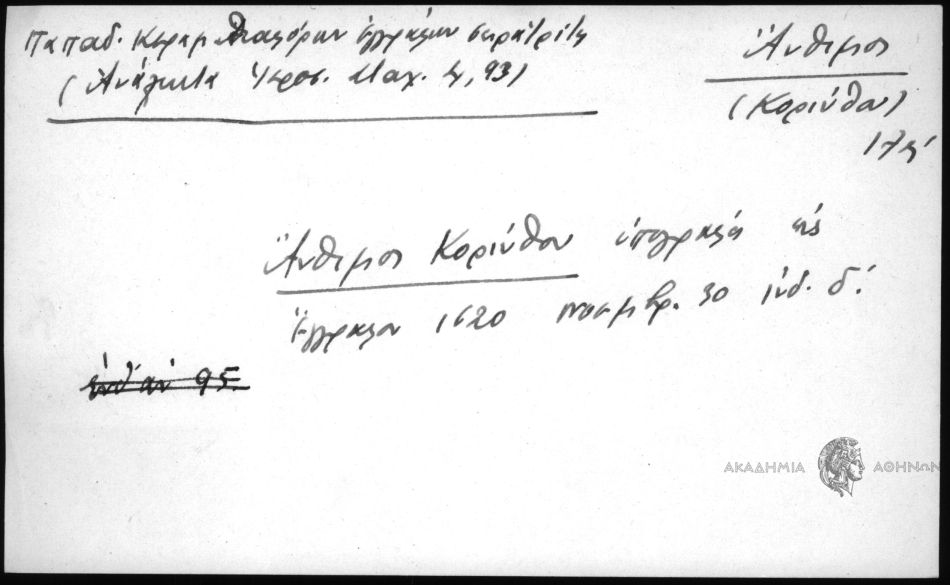 Παπαδ. Κεραμ Διαφόρων ἐγγράφων σειρὰ τρίτη
(Ἀνάλεκτα Ἱεροσ. Σταχ. 93)
Ἄνθιμος
(Κορίνθου)
17
Ἄνθιμος Κορίνθου ὑπογράφει εἰς
ἔγγραφον 1620 νοεμβρ. 30 ἰνδ. δ΄.
ἔνθ' ἀν 95.
ΑΚΑΔΗΜΙΑ ΑΘΗΝΩΝ